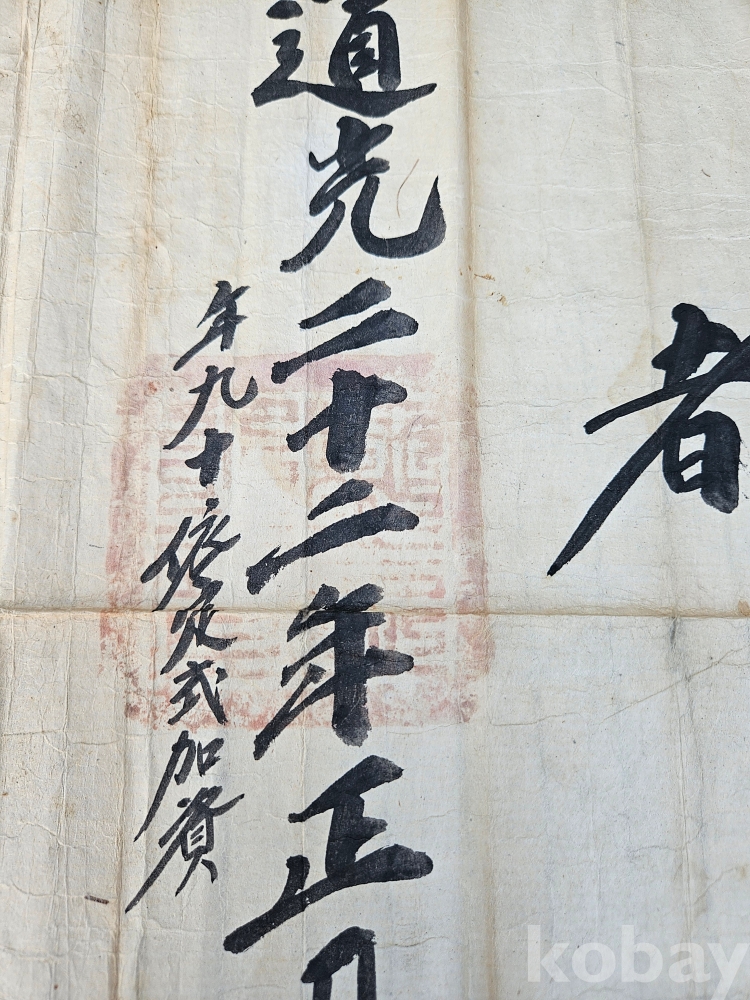 者
道光二十二年正月
年九十依定式加資
kobay